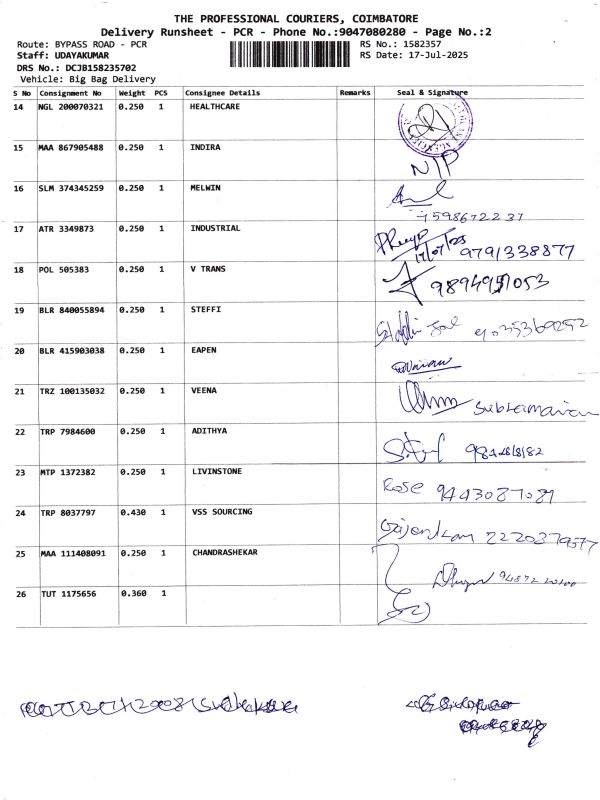 THE PROFESSIONAL COURIERS, COIMBATORE
Delivery Runsheet - PCR - Phone No.:9047080280 - Page No.:2
Route: BYPASS ROAD - PCR RS No.: 1582357
Staff: UDAYAKUMAR RS Date: 17-Jul-2025
DRS No.: DCJB158235702
Vehicle: Big Bag Delivery
S No Consignment No Weight PCS Consignee Details Remarks Seal & Signature
14 NGL 200070321 0.250 1 HEALTHCARE
15 MAA 867905488 0.250 1 INDIRA N/P
16 SLM 374345259 0.250 1 MELWIN
7598672237
17 ATR 3349873 0.250 1 INDUSTRIAL 17/07/25 9791338877
18 POL 505383 0.250 1 V TRANS
19 BLR 840055894 0.250 1 STEFFI
20 BLR 415903038 0.250 1 EAPEN
21 TRZ 100135032 0.250 1 VEENA Subramanian
22 TRP 7984600 0.250 1 ADITHYA
23 MTP 1372382 0.250 1 LIVINSTONE Rose 9443087089
24 TRP 8037797 0.430 1 VSS SOURCING
25 MAA 111408091 0.250 1 CHANDRASHEKAR
26 TUT 1175656 0.360 1